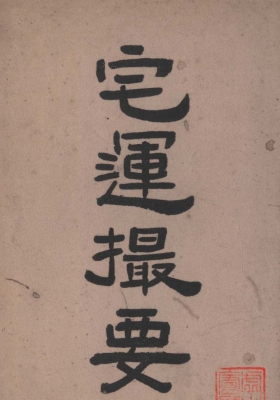 宅運撮要